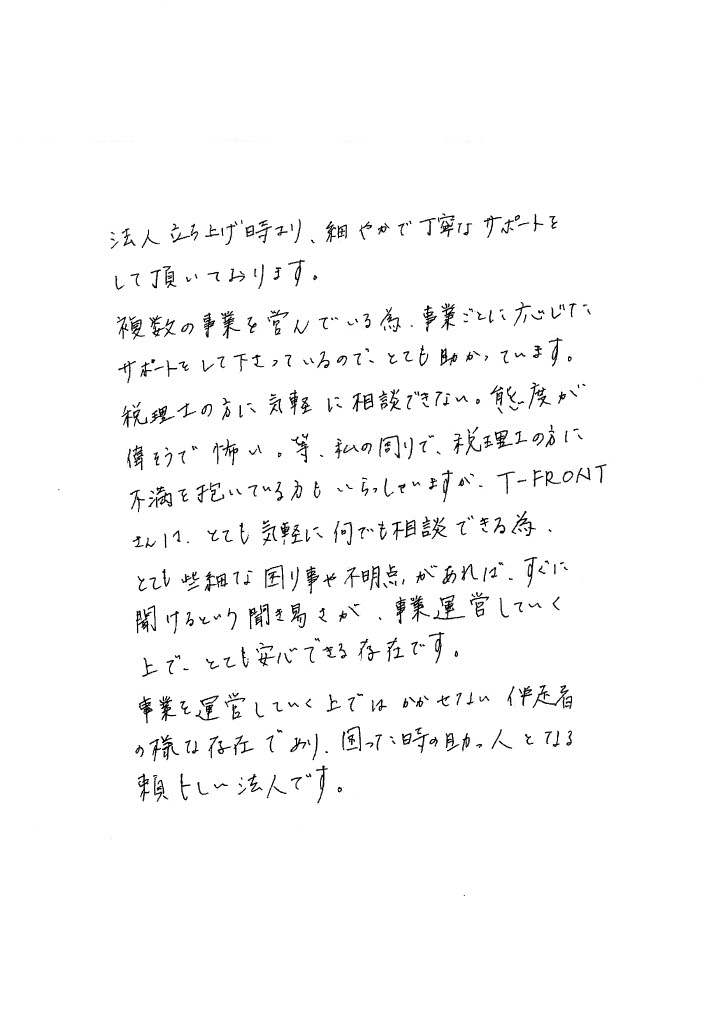 法人立ち上げ時より、細やかで丁寧なサポートを
して頂いております。
複数の事業を営んでいる為、事業ごとに応じた
サポートをして下さっているので、とても助かっています。
税理士の方に気軽に相談できない。態度が
偉そうで怖い。等、私の周りで、税理士の方に
不満を抱いている方もいらっしゃいますが、T-FRONT
さんは、とても気軽に何でも相談できる為、
とても些細な困り事や不明点があれば、すぐに
聞けるという聞き易さが、事業運営していく
上で、とても安心できる存在です。
事業を運営していく上ではかかせない伴走者
の様な存在であり、困った時の助っ人となる
頼もしい法人です。